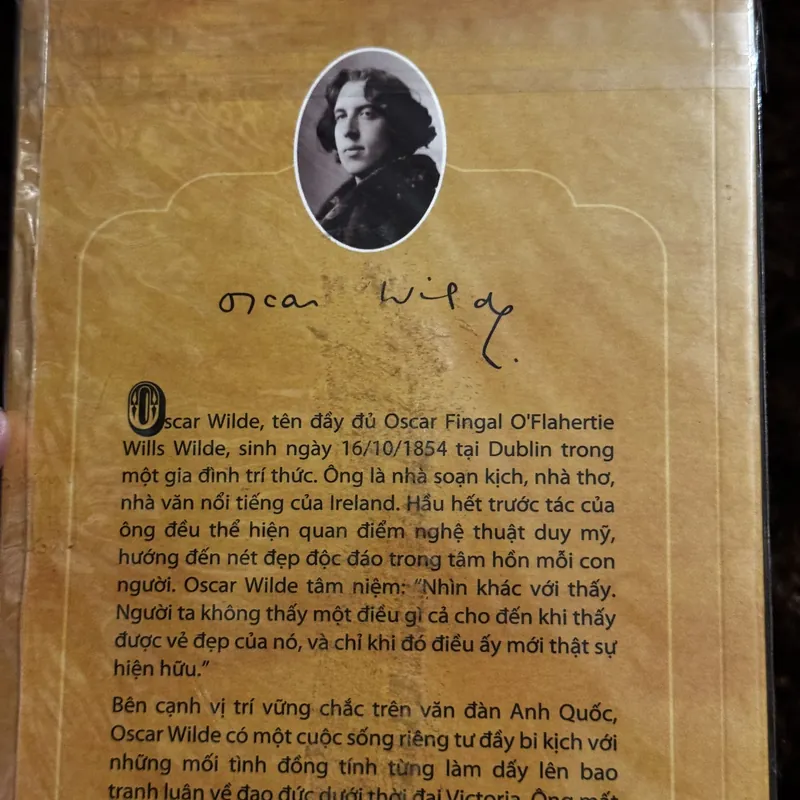 Oscar Wilde.
Oscar Wilde, tên đầy đủ Oscar Fingal O'Flahertie
Wills Wilde, sinh ngày 16/10/1854 tại Dublin trong
một gia đình trí thức. Ông là nhà soạn kịch, nhà thơ,
nhà văn nổi tiếng của Ireland. Hầu hết trước tác của
ông đều thể hiện quan điểm nghệ thuật duy mỹ,
hướng đến nét đẹp độc đáo trong tâm hồn mỗi con
người. Oscar Wilde tâm niệm: “Nhìn khác với thấy.
Người ta không thấy một điều gì cả cho đến khi thấy
được vẻ đẹp của nó, và chỉ khi đó điều ấy mới thật sự
hiện hữu.”
Bên cạnh vị trí vững chắc trên văn đàn Anh Quốc,
Oscar Wilde có một cuộc sống riêng tư đầy bi kịch với
những mối tình đồng tính từng làm dấy lên bao
tranh luận về đạo đức dưới thời đại Victoria. Ông mất